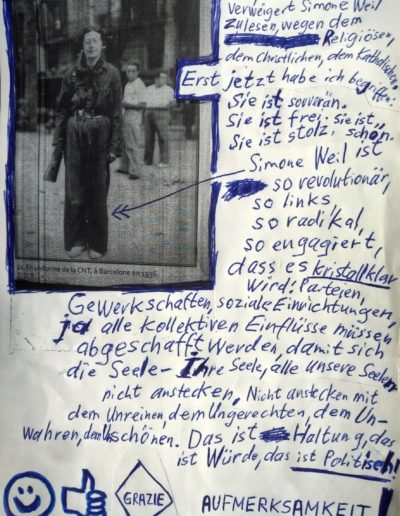 verweigert Simone Weil
zu lesen, wegen dem
Religiösen,
dem Christlichen, dem Katholischen.
Erst jetzt habe ich begriffen:
Sie ist souverän.
Sie ist frei, sie ist,
Sie ist stolz, schön.
Simone Weil ist
so revolutionär,
so links,
so radikal,
so engagiert,
dass es kristallklar
wird: Parteien,
Gewerkschaften, soziale Einrichtungen,
ja alle kollektiven Einflüsse müssen
abgeschafft werden, damit sich
die Seele - Ihre Seele, alle unsere Seelen
nicht anstecken, Nicht anstecken mit
dem Unreinen, dem Ungerechten, dem Un-
wahren, dem Unschönen. Das ist Haltung, das
ist Würde, das ist Politisch!
11. En uniforme de la CNT, à Barcelone en 1936.
GRAZIE
AUFMERKSAMKEIT!